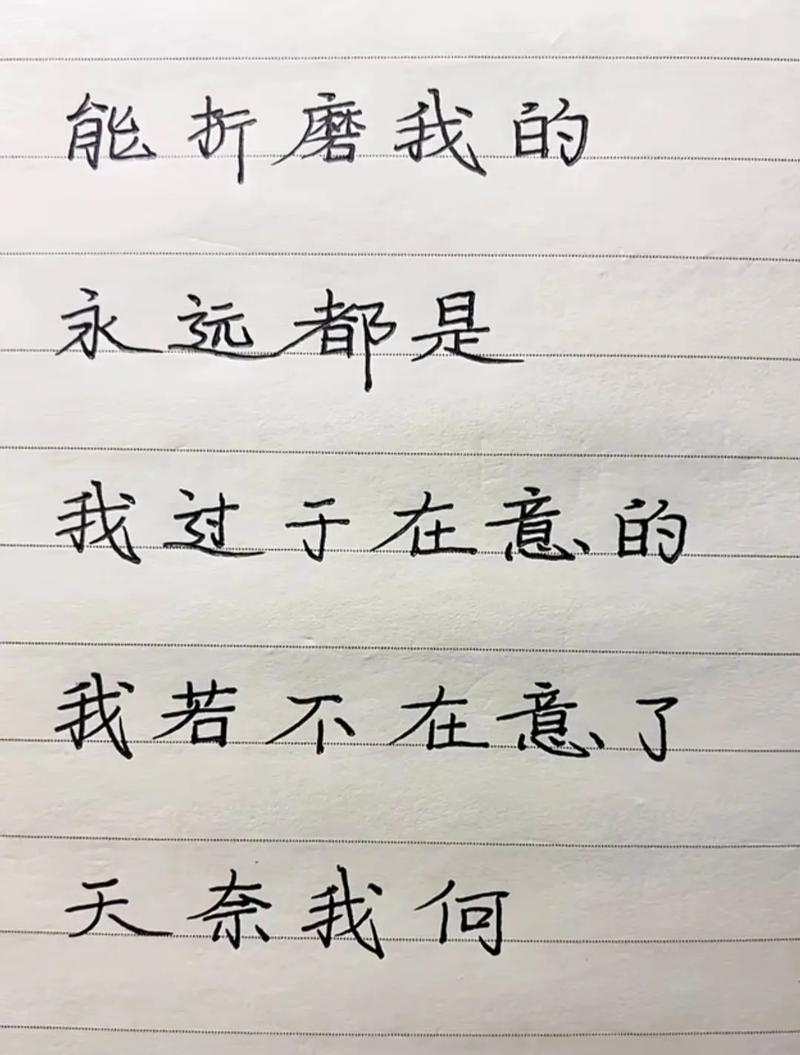 能折磨我的
永远都是
我过于在意的
我若不在意了
天奈我何